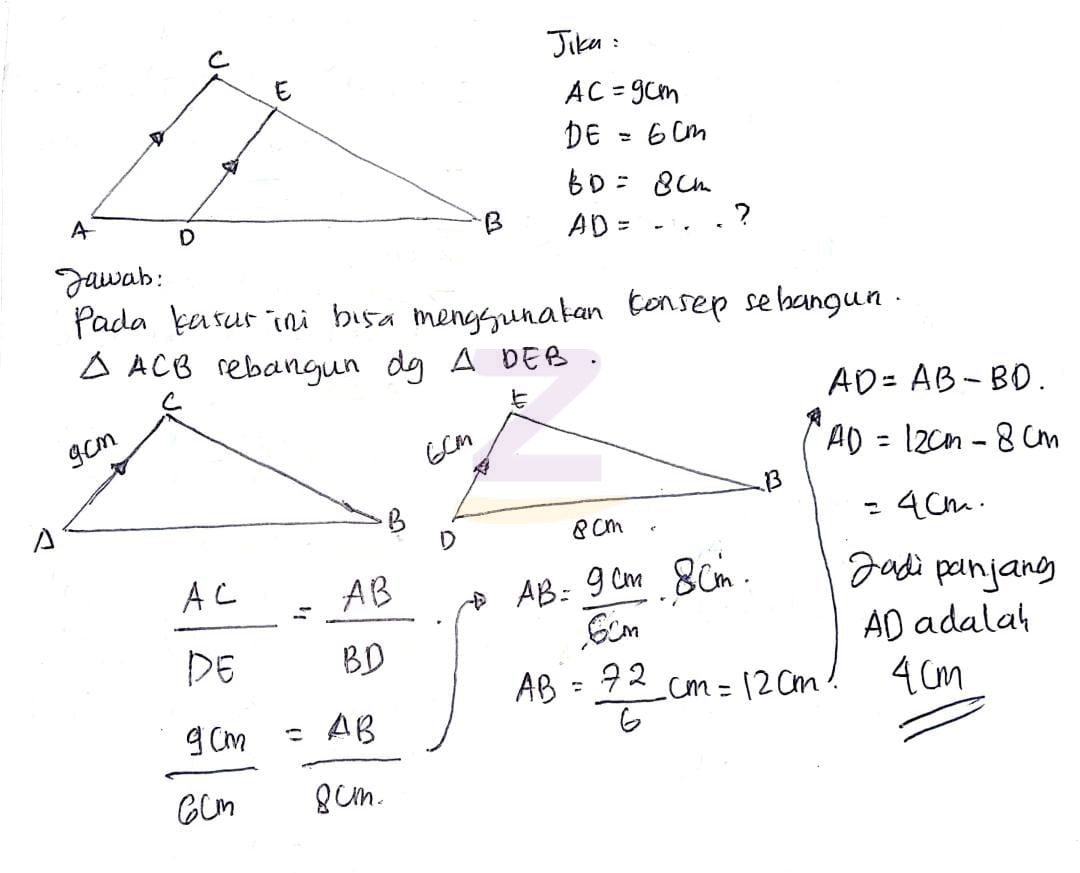 C
E
A
D
B
Jika :
AC = 9cm
DE = 6 cm
BD = 8cm
AD = . . . . ?
Jawab:
Pada kasus ini bisa menggunakan konsep sebangun .
Δ ACB sebangun dg Δ DEB .
C
9cm
A
B
E
6cm
D
8cm .
B
AC / DE = AB / BD .
9cm / 6cm = AB / 8cm.
AB = 9cm / 6cm . 8cm .
AB = 72 / 6 cm = 12cm .
AD = AB - BD .
AD = 12cm - 8cm
= 4cm .
Jadi panjang
AD adalah
4cm
Z